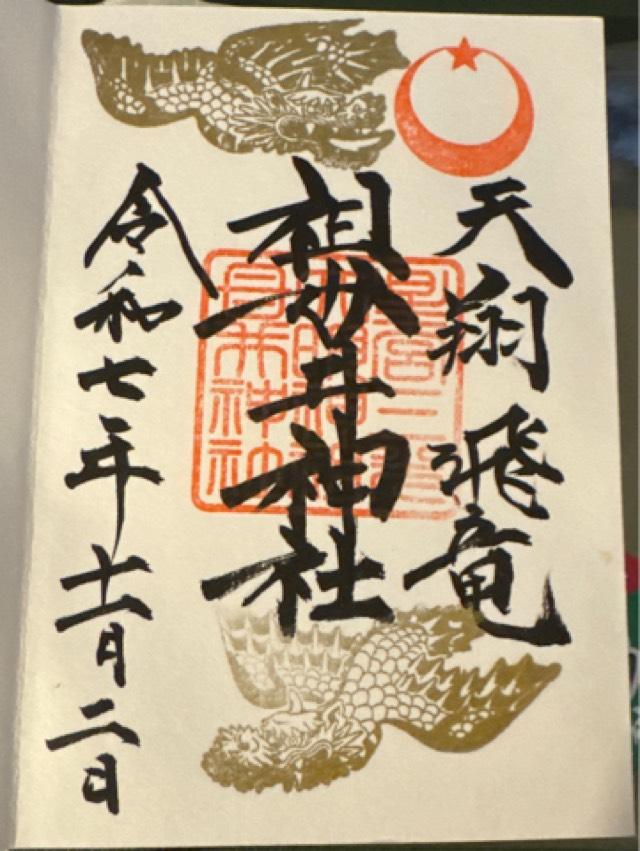 天翔飛竜
井神社
令和七年十一月二日